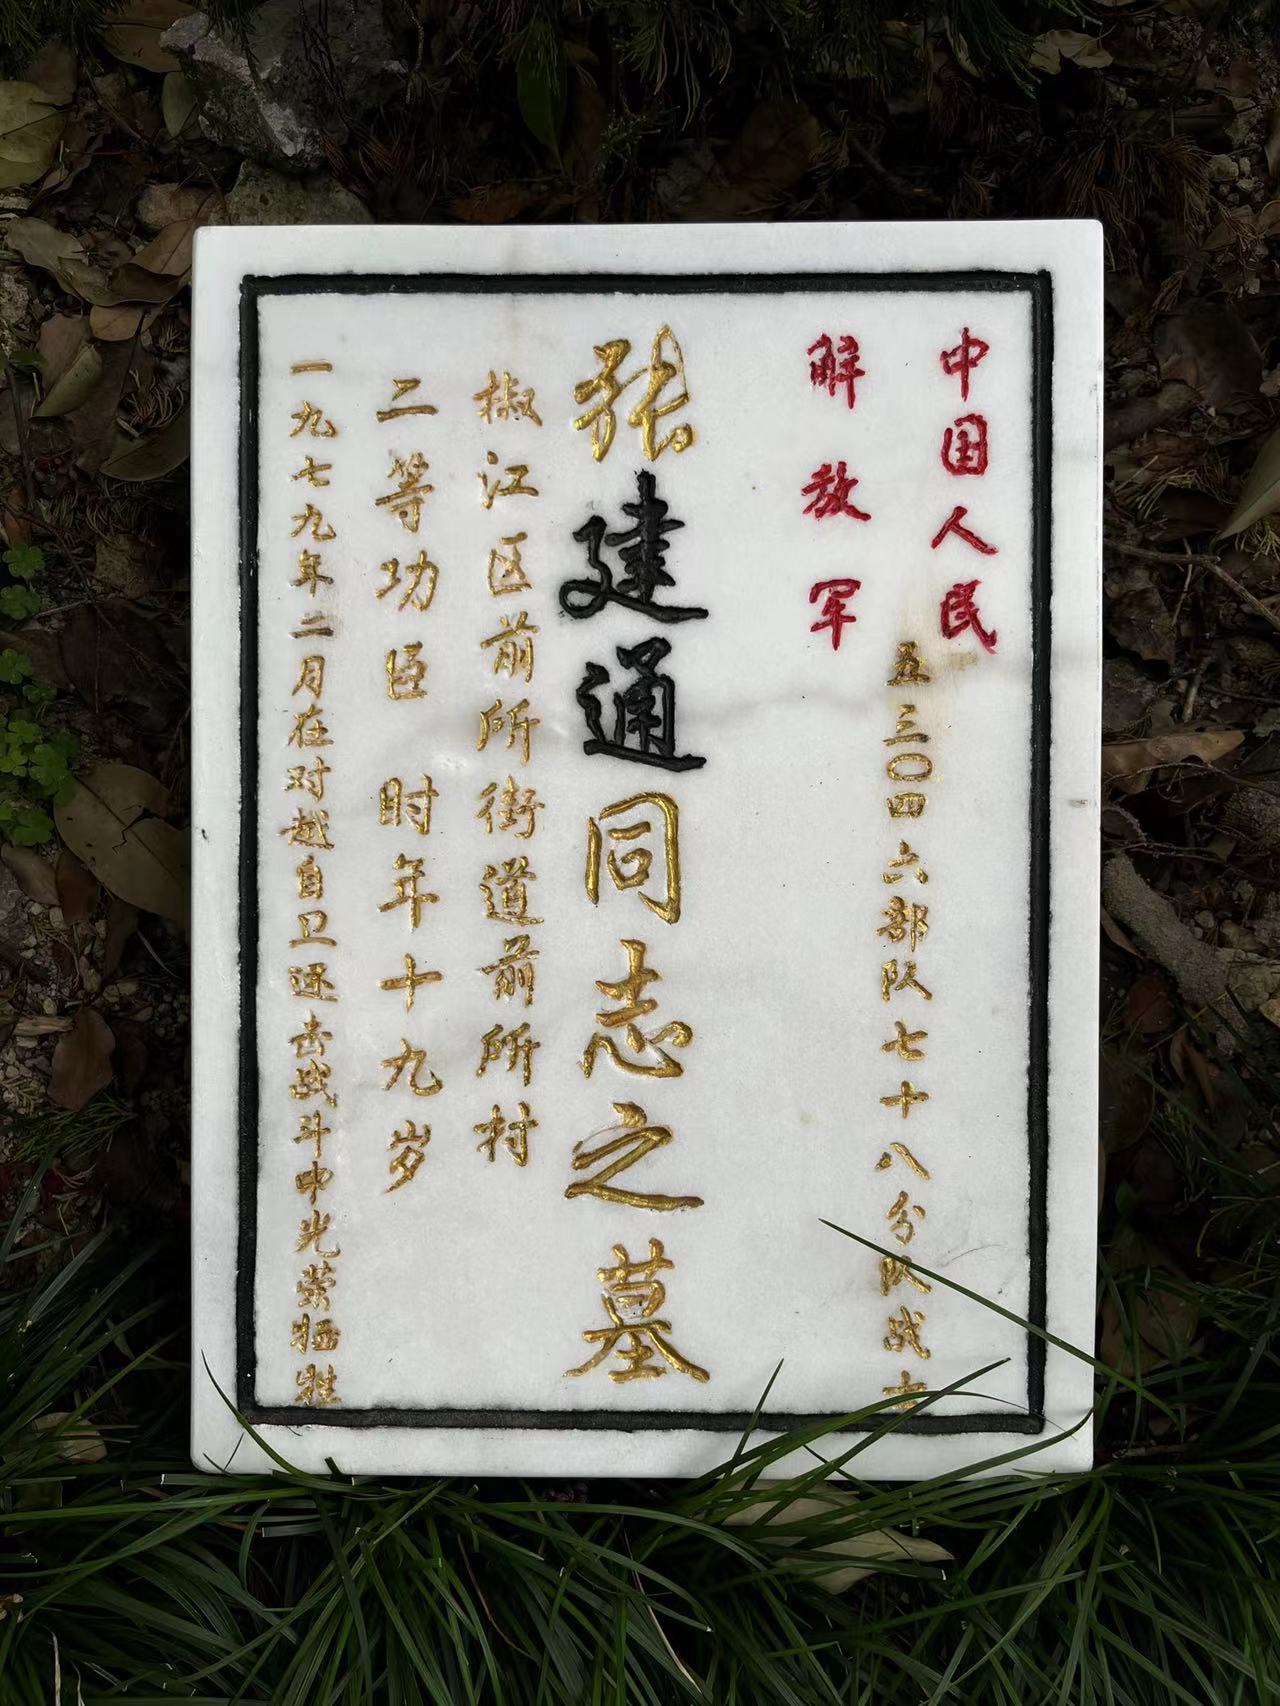 中国人民
解放军
五三〇四六部队七十八分队战士
张建通同志之墓
椒江区前所街道前所村
二等功臣 时年十九岁
一九七九年二月在对越自卫还击战斗中光荣牺牲